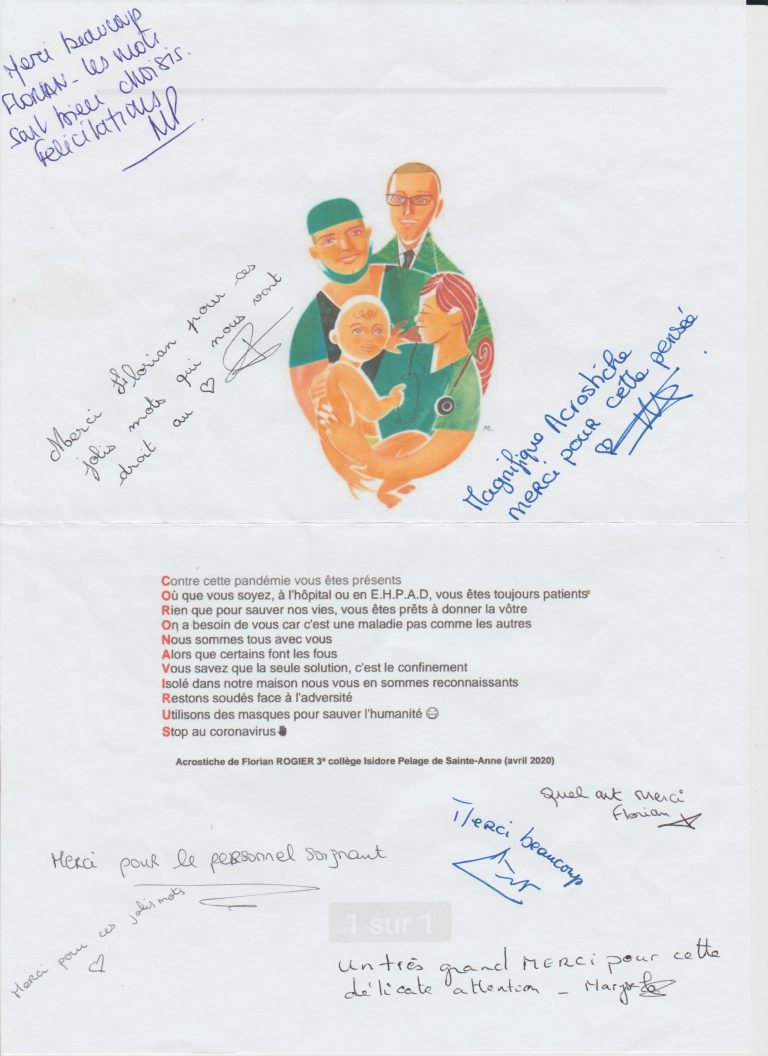 Merci beaucoup
Florian - les mots
sont bien choisis.
Félicitations
MP
Merci Florian pour ces
jolis mots qui nous vont
droit au ♡
Magnifique Acrostiche
merci pour cette pensée
♡
M.
Contre cette pandémie vous êtes présents
Où que vous soyez, à l'hôpital ou en E.H.P.A.D, vous êtes toujours patients
Rien que pour sauver nos vies, vous êtes prêts à donner la vôtre
On a besoin de vous car c'est une maladie pas comme les autres
Nous sommes tous avec vous
Alors que certains font les fous
Vous savez que la seule solution, c'est le confinement
Isolé dans notre maison nous vous en sommes reconnaissants
Restons soudés face à l'adversité
Utilisons des masques pour sauver l'humanité 😷
Stop au coronavirus✋
Acrostiche de Florian ROGIER 3° collège Isidore Pelage de Sainte-Anne (avril 2020)
Quel art merci
Florian
Merci beaucoup
Merci pour le personnel soignant
Merci pour ces jolis mots
♡
1 sur 1
Un très grand MERCI pour cette
délicate attention -